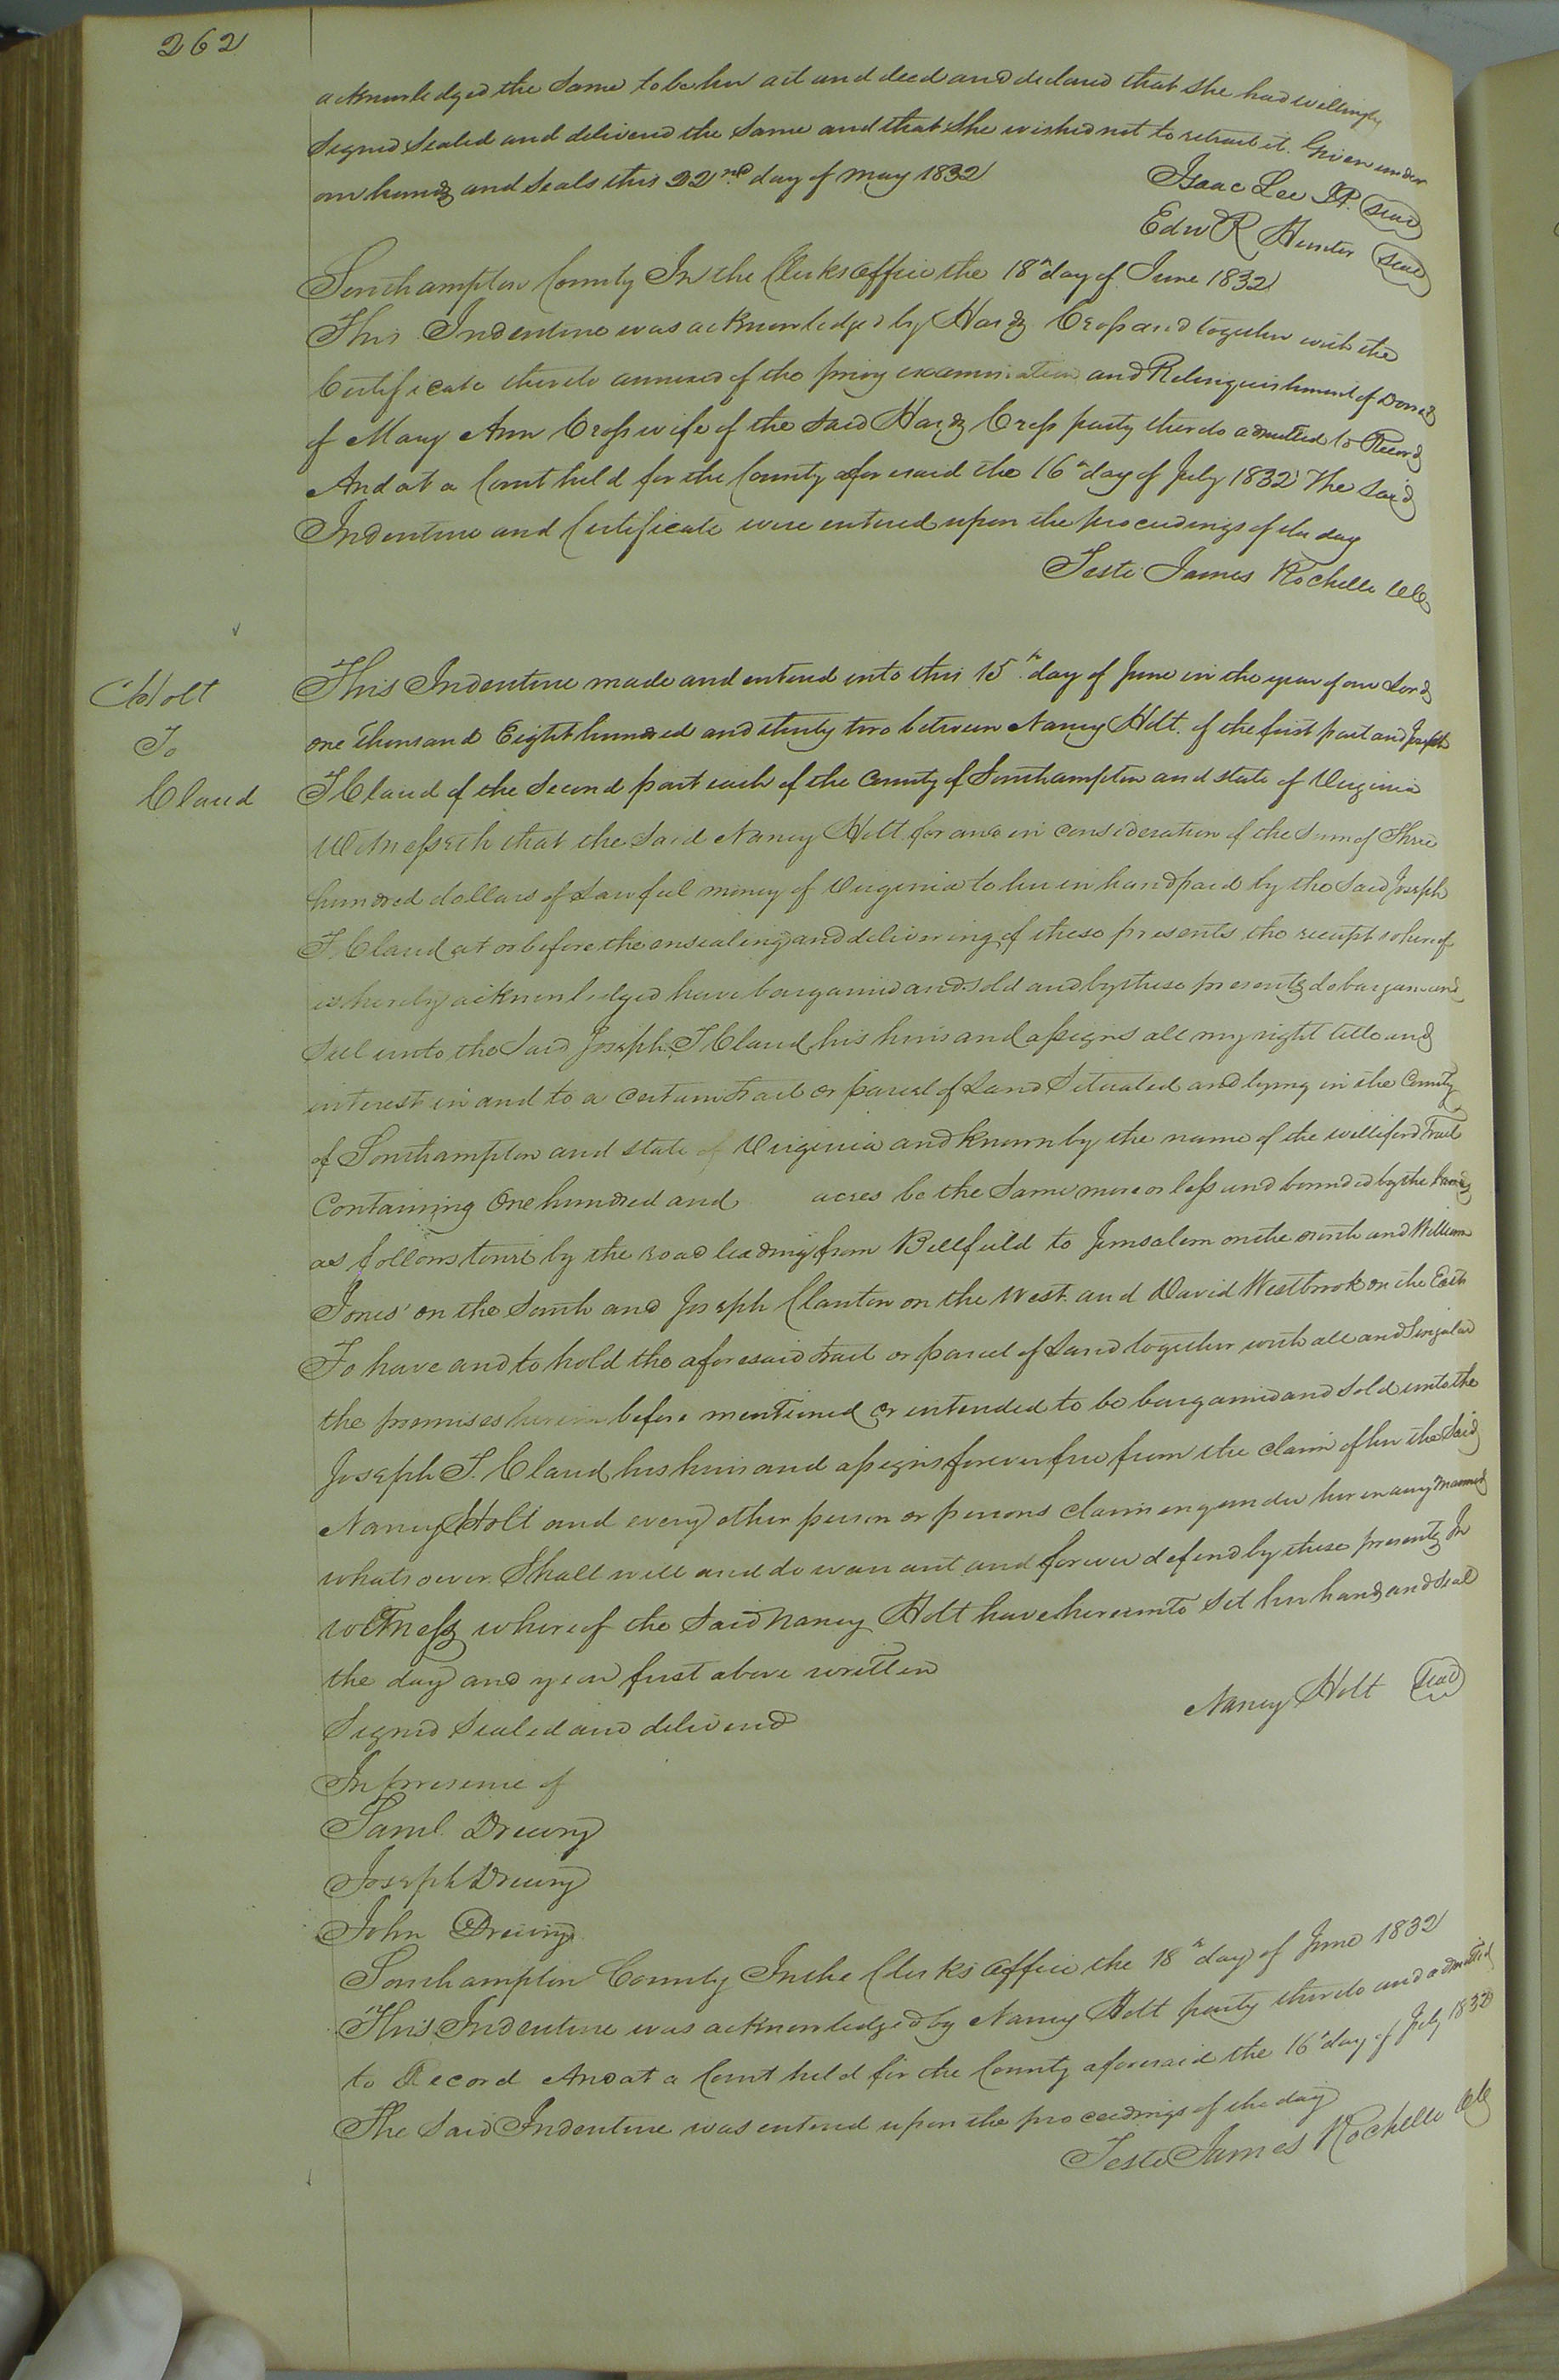 262
acknowledged the Same to be her act and deed and declared that She had willingly
Signed Sealed and delivered the Same and that She wished not to retract it. Given under
our hands and Seals this 22nd day of may 1832
Isaac Lee J.P. Seal
Edw R Hunter Seal
Southampton County In the Clerks office the 18th day of June 1832
This Indenture was acknowledged by Hardy Cross and together with the
Certificate thereto annexed of the privy examination and Relinquishment of Dower
of Mary Ann Cross wife of the Said Hardy Cross party thereto admitted to Record
And at a Court held for the County aforesaid the 16th day of July 1832 The Said
Indenture and Certificate were entered upon the proceedings of the day
Teste James Rochelle CC
Holt
To
Claud
This Indenture made and entered into this 15th day of June in the year of our Lord
one Thousand Eight hundred and thirty two between Nancy Holt. of the first part and Joseph
T Claud of the Second part each of the County of Southampton and state of Virginia
Witnesseth that the Said Nancy Holt for and in Consideration of the Sum of Three
hundred dollars of Lawful money of Virginia to her in hand paid by the Said Joseph
T. Claud at or before the ensealing and delivering of these presents the receipt whereof
is hereby acknowledged have bargained and Sold and by these presents do bargain and
Sell unto the Said Joseph T Claud his heirs and assigns all my right title and
interest in and to a Certain tract or parcel of Land Situated and lying in the County
of Southampton and state of Virginia and known by the name of the williford Tract
Containing One hundred and acres be the Same more or less and bounded by the
as follows towit by the road leading from Bellfield to Jerusalem on the north and William
Jones' on the South and Joseph Clanton on the West. and David Westbrook on the East
To have and to hold the aforesaid tract or parcel of Land together with all and Singular
the premises herein before mentioned or intended to be bargained and Sold unto the
Joseph T. Claud his heirs and assigns forever free from the claim of her the Said
Nancy Holt and every other person or persons claiming under her in any manner
whatsoever Shall will and do warrant and forever defend by these presents In
witness whereof the Said Nancy Holt have hereunto Set her hand and Seal
the day and year first above written
Nancy Holt Seal
Signed Sealed and delivered
In presence of
Saml. Drewry
Joseph Drewry
John Drewry
Southampton County In the Clerks office the 18th day of June 1832
This Indenture was acknowledged by Nancy Holt party thereto and admitted
to Record And at a Court held for the County aforesaid the 16th day of July 1832
The Said Indenture was entered upon the proceedings of the day
Teste James Rochelle CC